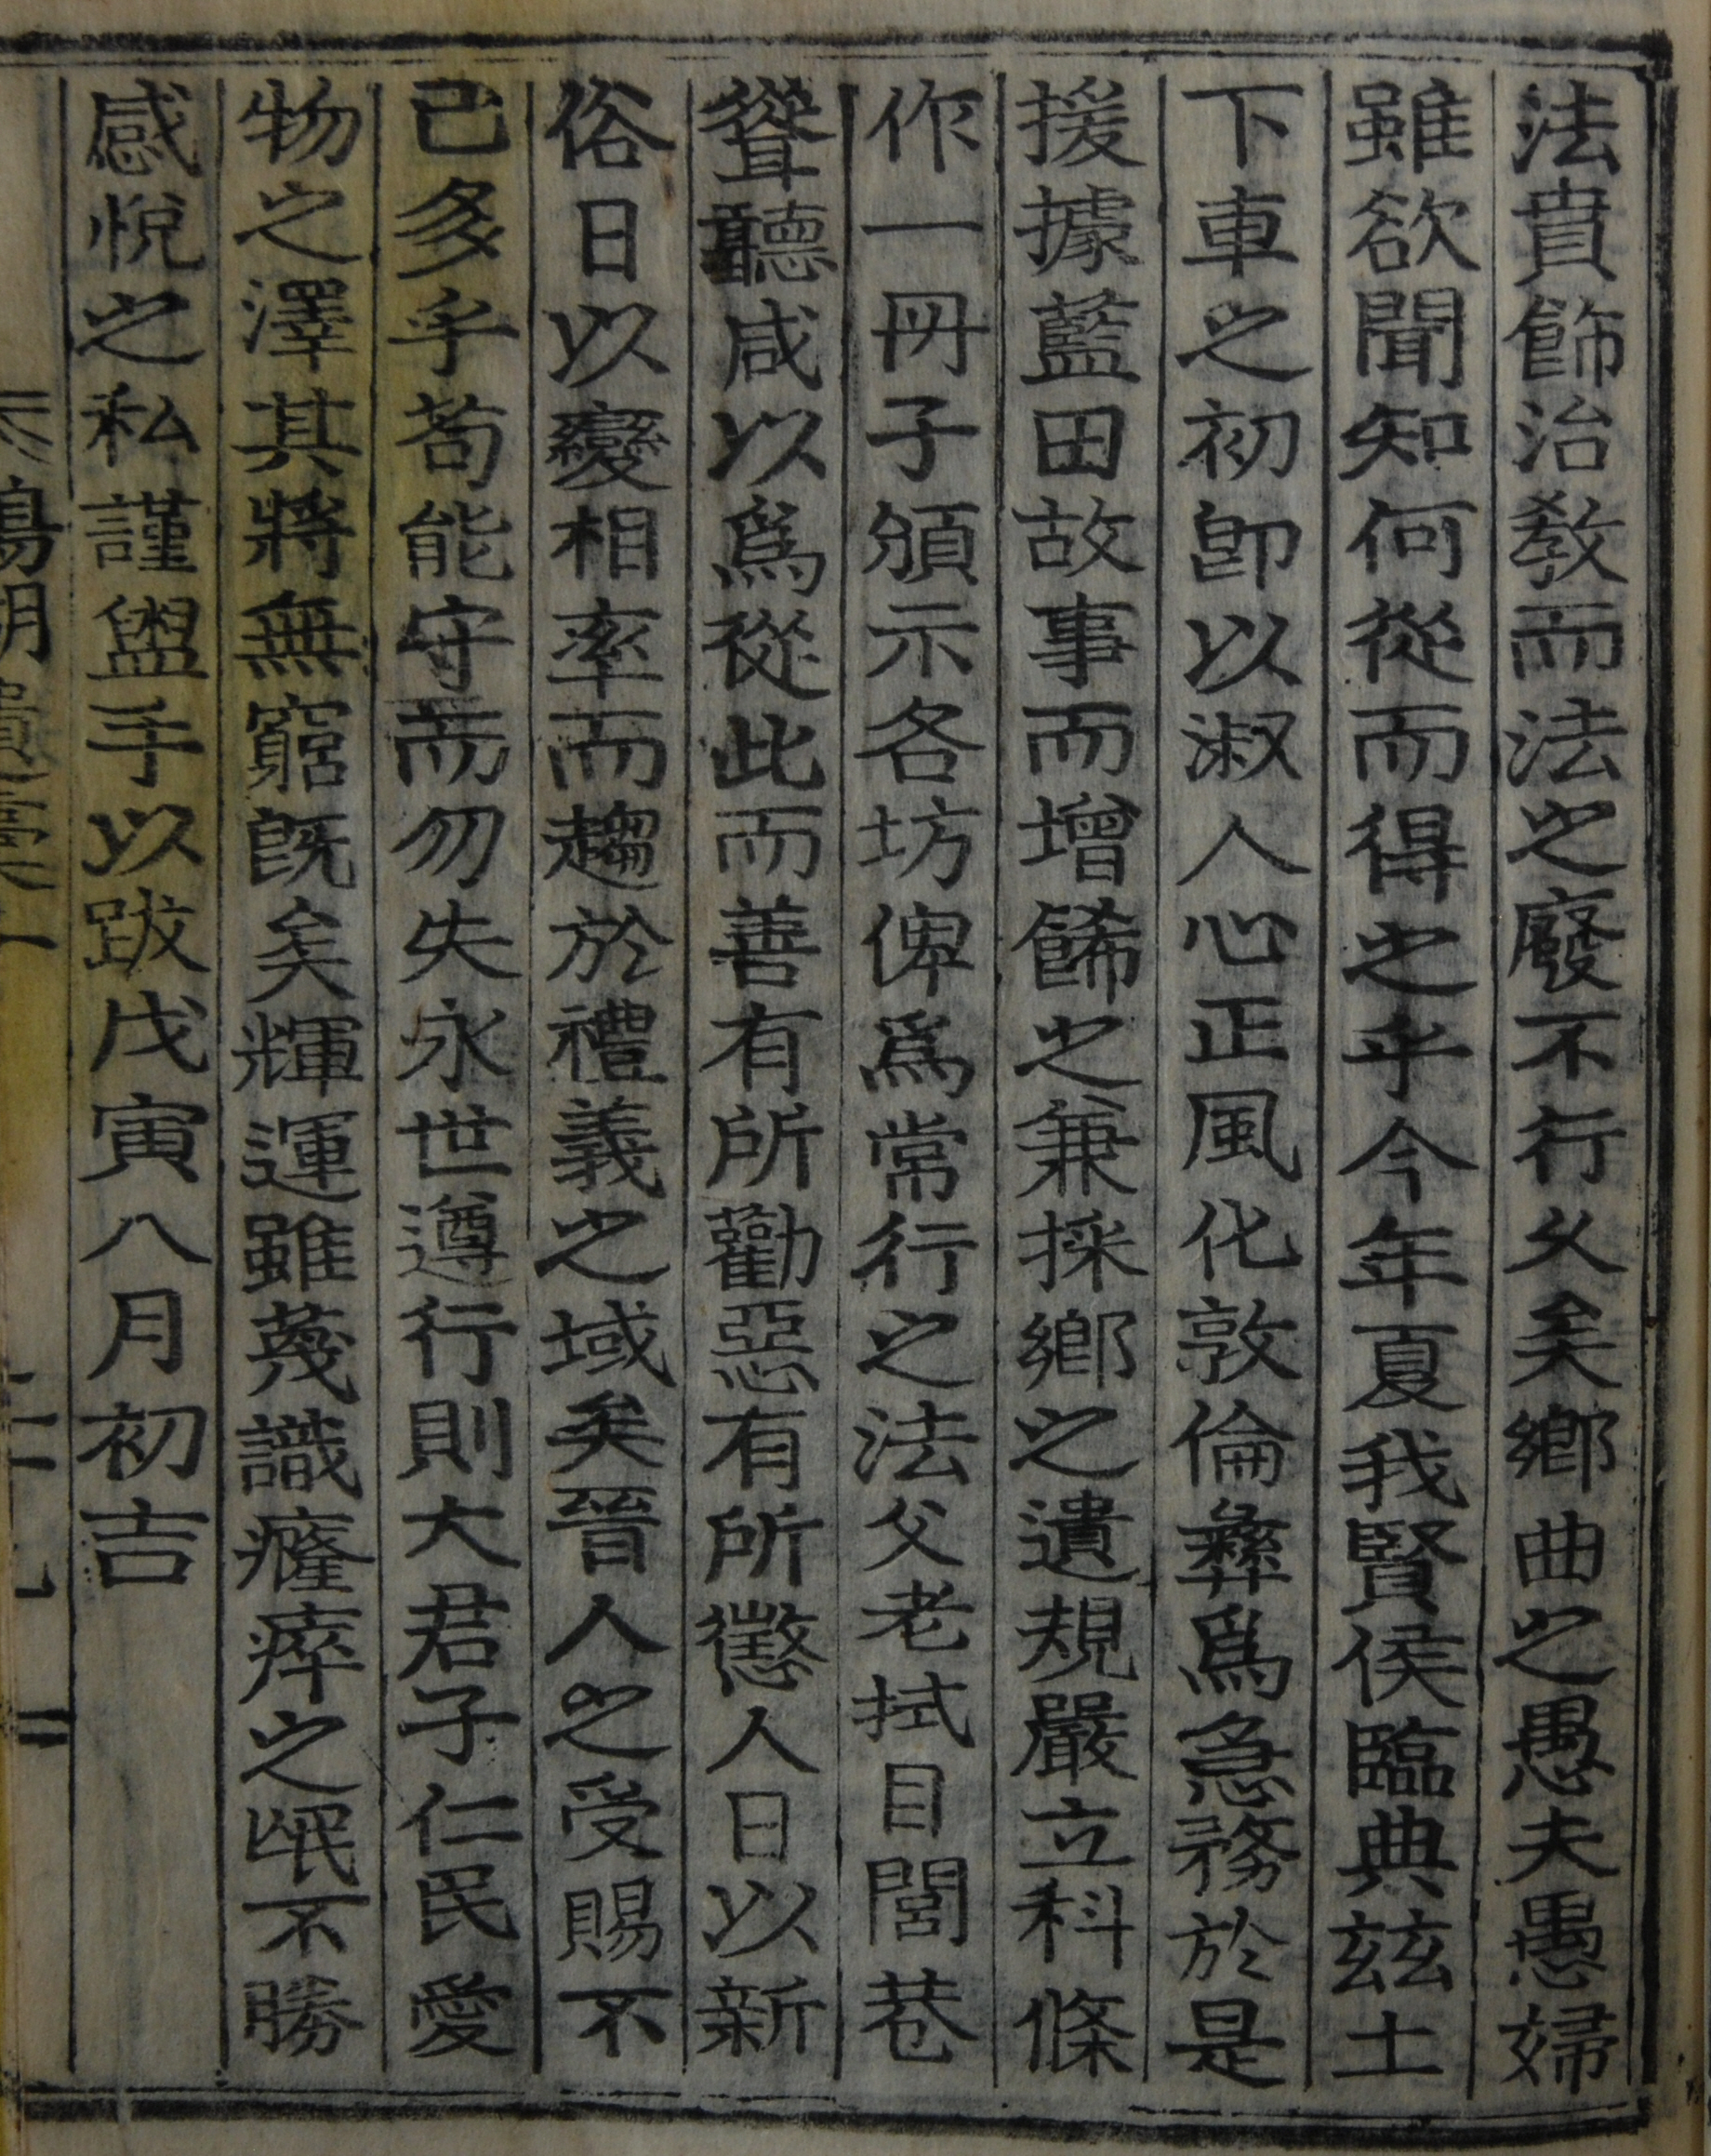 法賁飾治敎而法之廢不行久矣鄕曲之愚夫愚婦
雖欲聞知何從而得之乎今年夏我賢侯臨典玆土
下車之初卽以淑人心正風化敦倫彝爲急務於是
援據藍田故事而增餙之兼採鄕之遺規嚴立科條
作一冊子頒示各坊俾爲常行之法父老拭目閭巷
聳聽咸以爲從此而善有所勸惡有所懲人日以新
俗日以變相率而趨於禮義之域矣晉人之受賜不
已多乎苟能守而勿失永世遵行則大君子仁民愛
物之澤其將無窮旣矣輝運雖蔑識癃瘁之氓不勝
感悅之私謹盥手以跋戊寅八月初吉